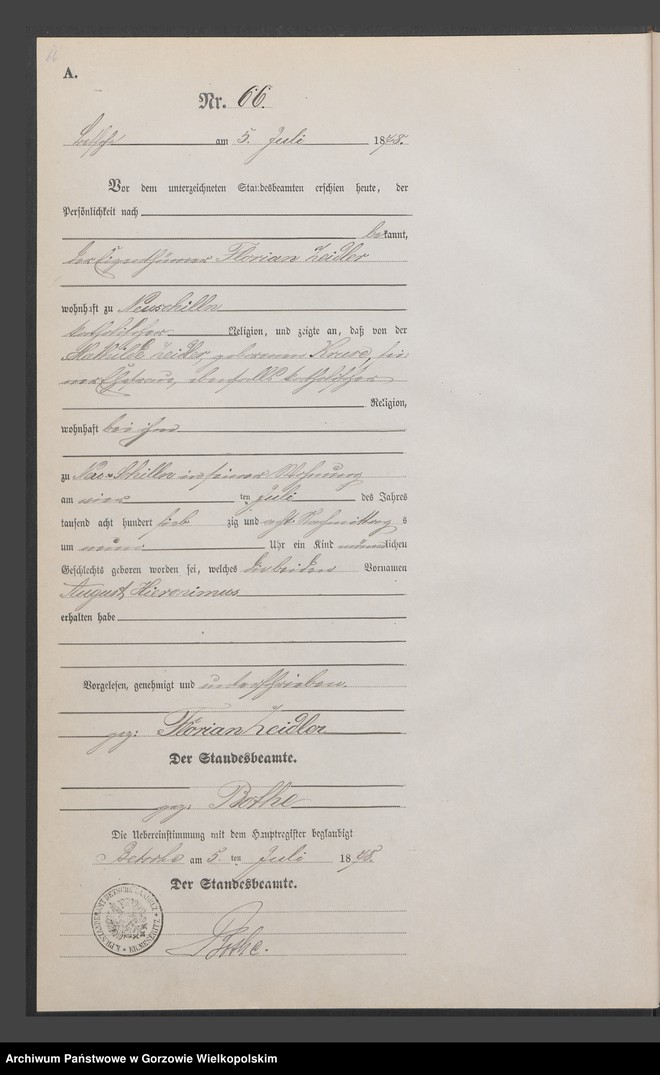 A.
Nr. 66.
Betsche am 5. Juli 1878.
Vor dem unterzeichneten Standesbeamten erschien heute, der
Persönlichkeit nach
bekannt,
der Eigenthümer Florian Zeidler
wohnhaft zu Neuschilln
katholischer Religion, und zeigte an, daß von der
Mathilde Zeidler, geborenen Kruse, sei-
ner Ehefrau, ebenfalls katholischer
Religion,
wohnhaft bei ihm
zu Neu-Schilln in seiner Wohnung
am vier ten Juli des Jahres
tausend acht hundert sieb zig und acht Nachmittag s
um neun Uhr ein Kind männlichen
Geschlechts geboren worden sei, welches die beiden Vornamen
August Hieronimus
erhalten habe
Vorgelesen, genehmigt und unterschrieben.
gez: Florian Zeidler
Der Standesbeamte.
gez: Bothe
Die Uebereinstimmung mit dem Hauptregister beglaubigt
Betsche am 5. ten Juli 1878.
Der Standesbeamte.
Bothe.
Archiwum Państwowe w Gorzowie Wielkopolskim